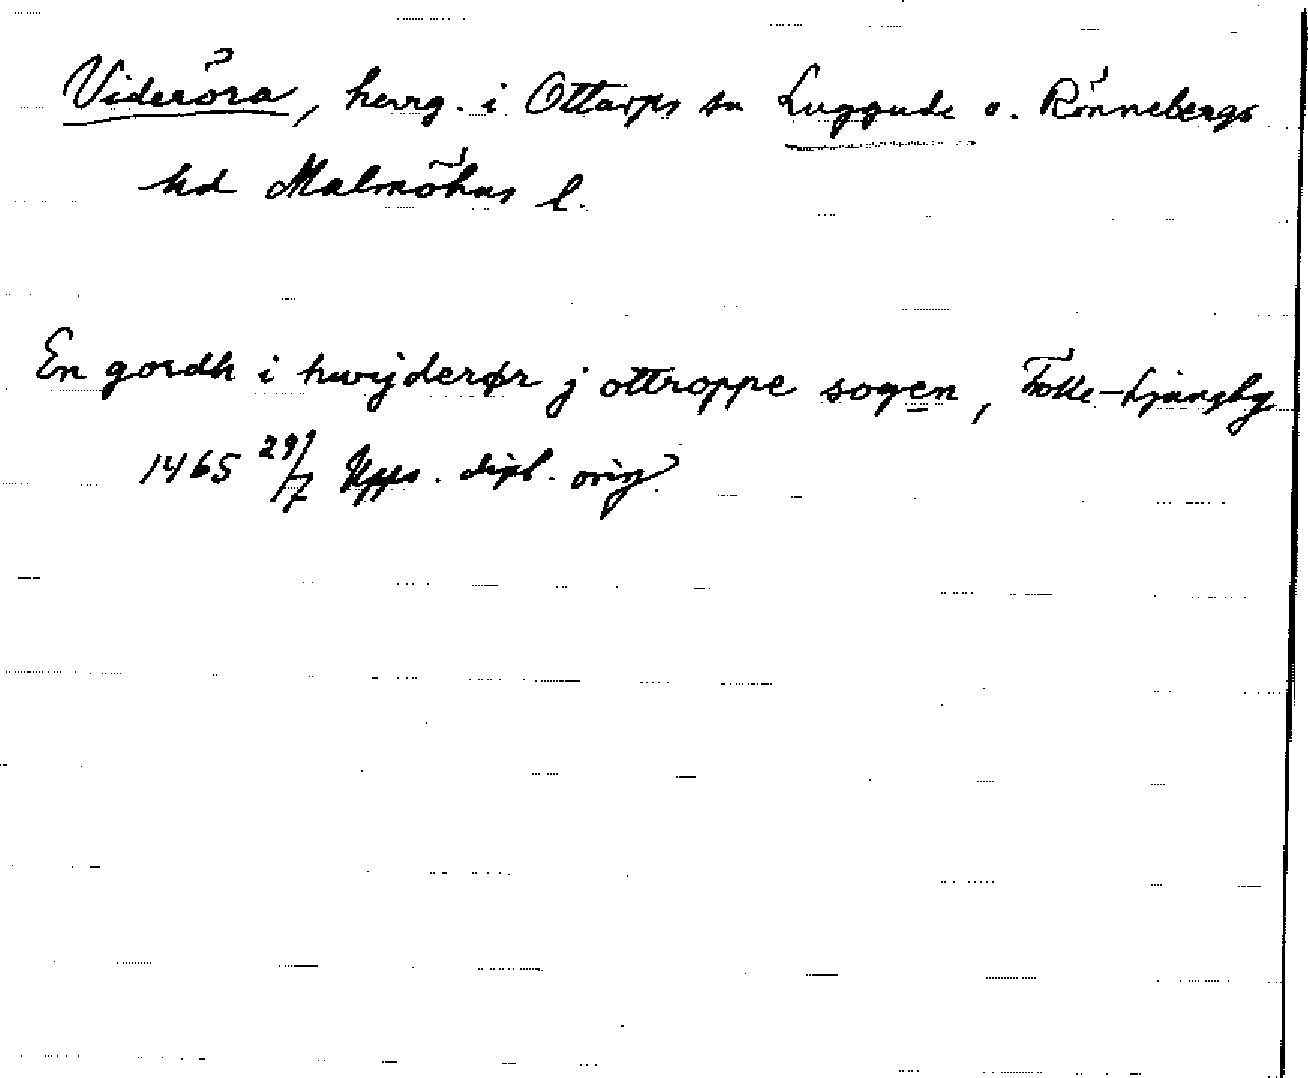 Videröra, herrg. i Ottarps sn Luggude o. Rönnebergs
hd Malmöhus l.
En gordh i hwijderør j ottroppe sogen, Tolle-Ljungby
1465 29/7 Upps. dipl. orig.